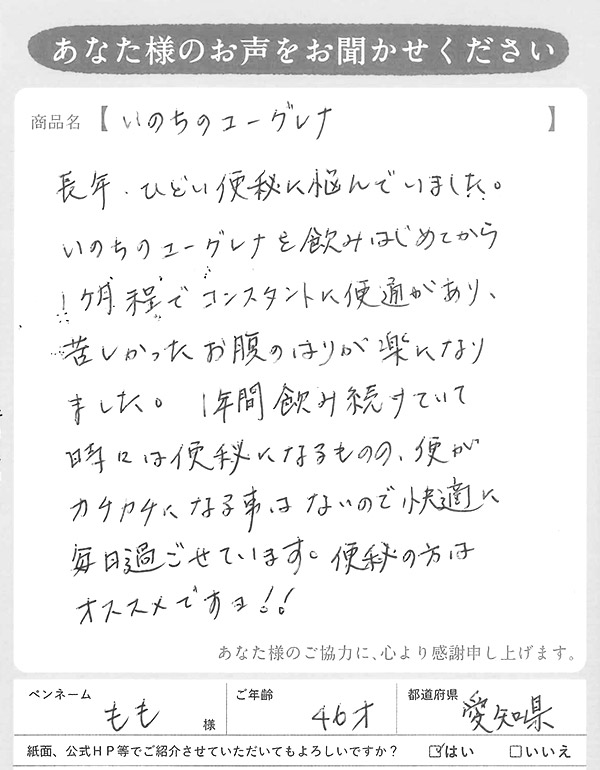 あなた様のお声をお聞かせください
商品名【いのちのユーグレナ】
長年、ひどい便秘に悩んでいました。
いのちのユーグレナを飲みはじめてから
1ヶ月程でコンスタントに便通があり、
苦しかったお腹のはりが楽になり
ました。1年間飲み続けていて
時には便秘になるものの、便が
カチカチになる事はないので快適に
毎日過ごせています。便秘の方は
オススメですョ!!
あなた様のご協力に、心より感謝申し上げます。
ペンネーム もも 様 ご年齢 46才 都道府県 愛知県
紙面、公式HP等でご紹介させていただいてもよろしいですか? ☑はい □いいえ